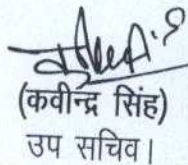 (कवीन्द्र सिंह)
उप सचिव।